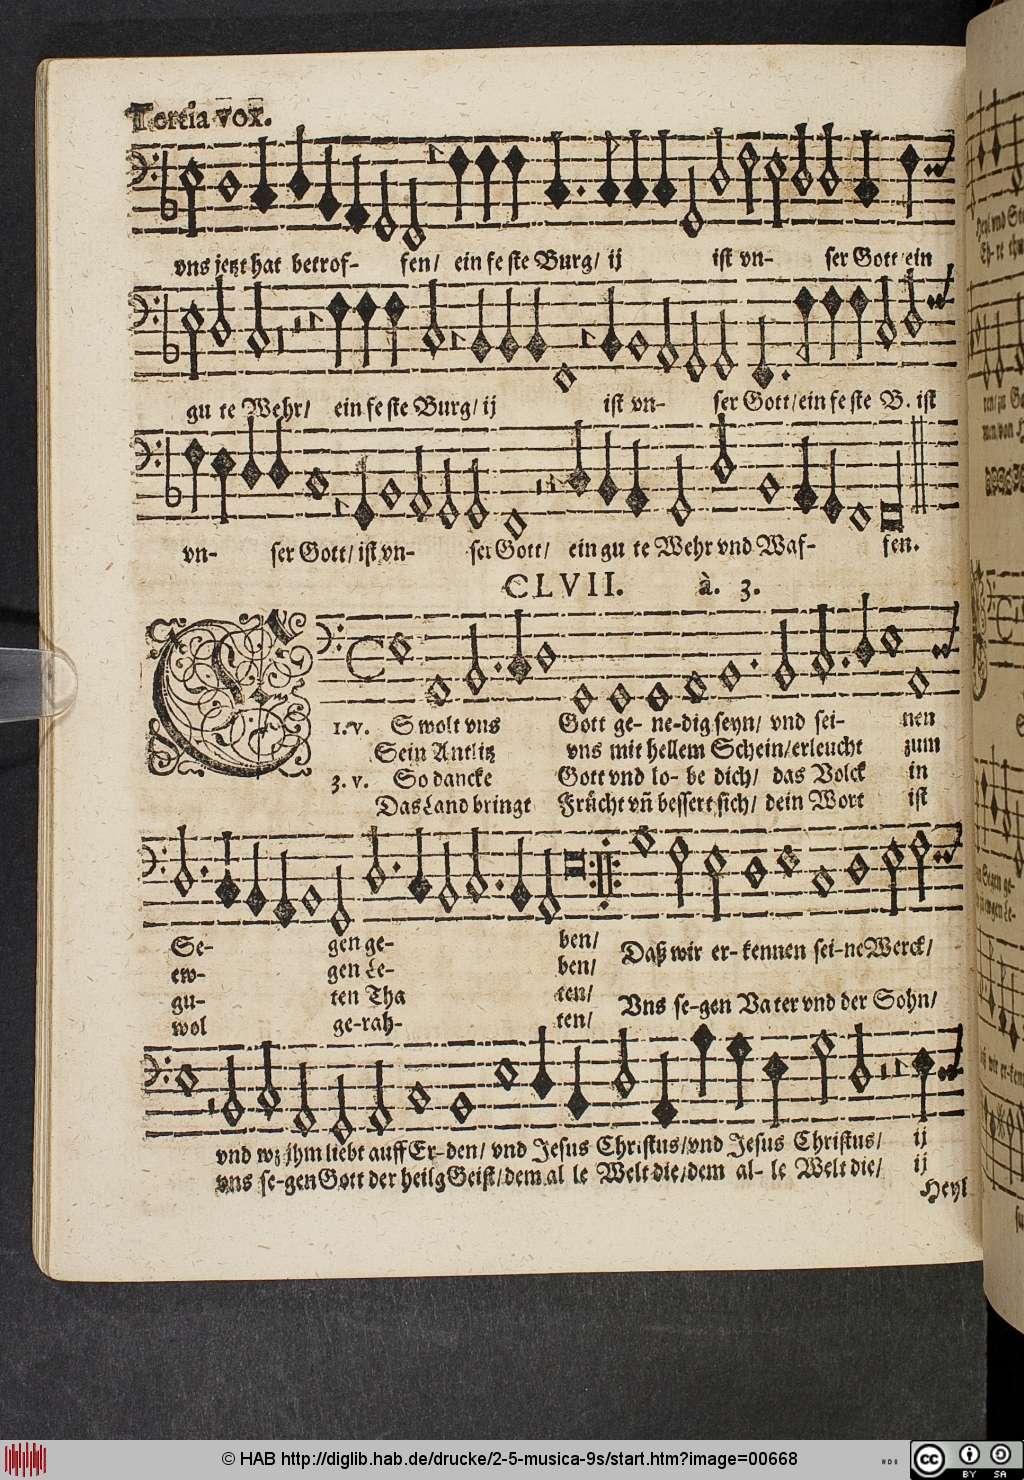 Tertia vox.
vns jetzt hat betrof- fen/ ein feste Burg/ ij ist vn- ser Gott/ein
gu te Wehr/ ein feste Burg/ ij ist vn- ser Gott/ein feste B. ist
vn- ser Gott/ ist vn- ser Gott/ ein gu te Wehr vnd Waf- fen.
CLVII. à. 3.
1. v. ES wolt vns Gott ge- ne-dig seyn/ vnd sei- nen
Sein Antlitz vns mit hellem Schein/erleucht zum
3. v. So dancke Gott vnd lo- be dich/ das Volck in
Das Land bringt Frücht vñ bessert sich/ dein Wort ist
Se- gen ge- ben/ Daß wir er- kennen sei-ne Werck/
ew- gen Le- ben/
gu- ten Tha ten/ Vns se-gen Vater vnd der Sohn/
wol ge-rah- ten/
vnd wz jhm liebt auff Er-den/ vnd Jesus Christus/vnd Jesus Christus/ ij
vns se-gen Gott der heilg Geist/dem al le Welt die/dem al- le Welt die/ ij
Heyl
© HAB http://diglib.hab.de/drucke/2-5-musica-9s/start.htm?image=00668
cc BY SA